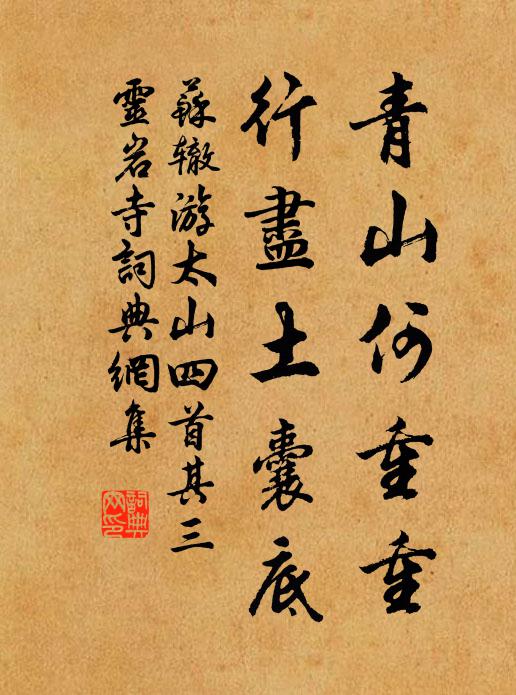 青山何重重
行盡土囊底
蘇辙游太山四首其三
靈岩寺詞典網集
詞典网印